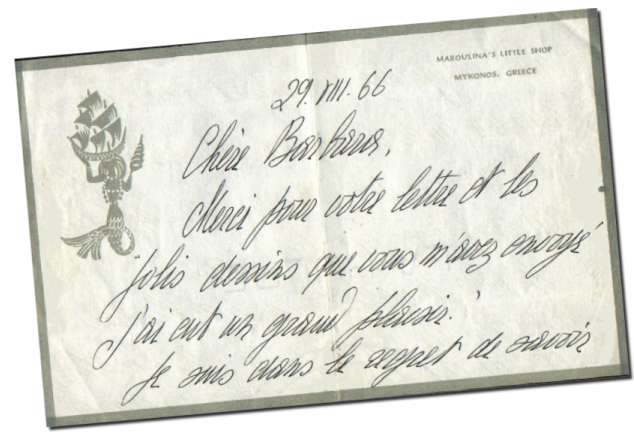 MAROULINA'S LITTLE SHOP
MYKONOS, GREECE
29.VIII.66
Chère Barbara,
Merci pour votre lettre et les
jolis dessins que vous m'avez envoyé
J'ai eut un grand plaisir!
Je suis dans le regret de savoir